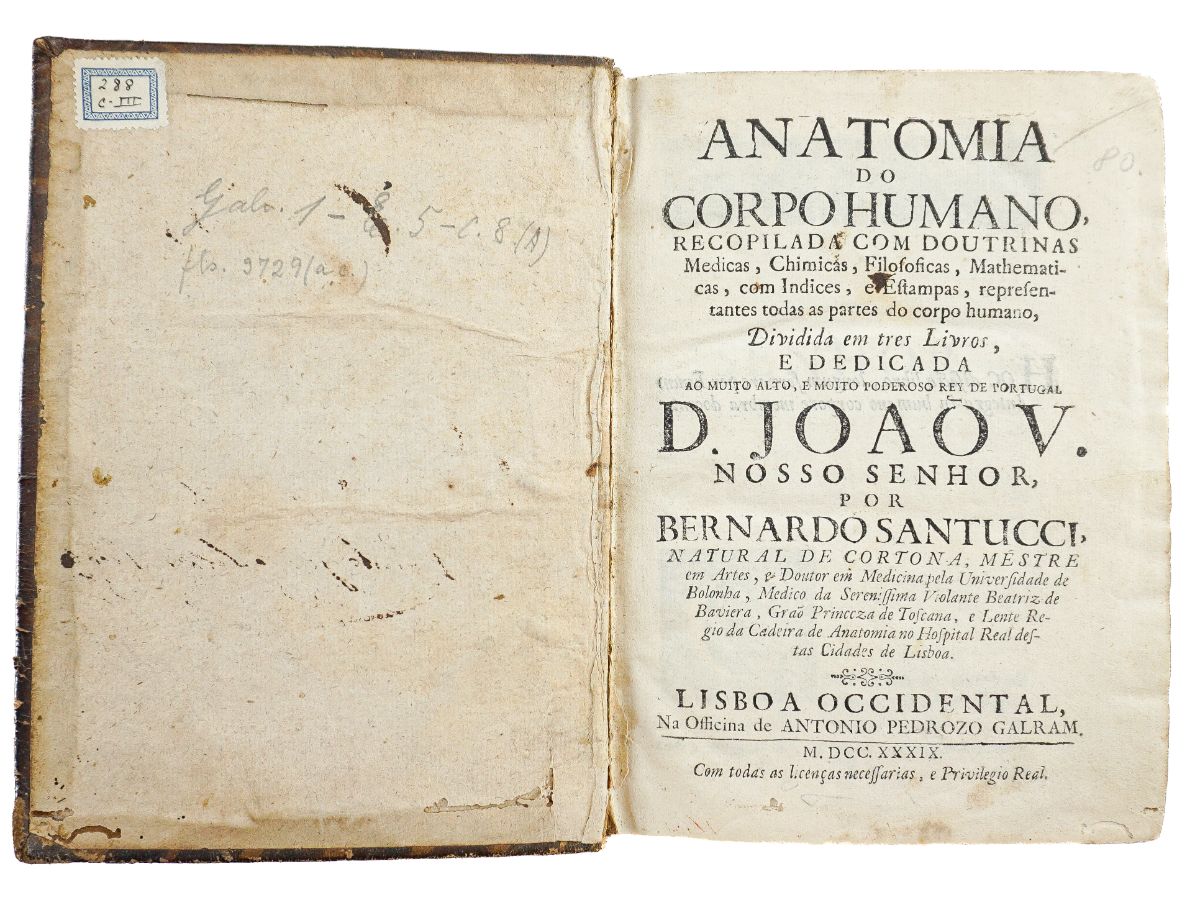 288
C-III
Gab. 1-
5-C. 8 (A)
fls. 9729 (a.c.)
80.
ANATOMIA
DO
CORPO HUMANO,
RECOPILADA COM DOUTRINAS
Medicas, Chimicas, Filoſoficas, Mathemati-
cas, com Indices, e Eſtampas, repreſen-
tantes todas as partes do corpo humano,
Dividida em tres Livros,
E DEDICADA
AO MUITO ALTO, E MUITO PODEROSO REY DE PORTUGAL
D. JOAÕ V.
NOSSO SENHOR,
POR
BERNARDO SANTUCCI,
NATURAL DE CORTONA, MESTRE
em Artes, e Doutor em Medicina pela Univerſidade de
Bolonha, Medico da Sereniſſima Violante Beatriz de
Baviera, Graõ Princeza de Toſcana, e Lente Re-
gio da Cadeira de Anatomia no Hoſpital Real deſ-
tas Cidades de Lisboa.
LISBOA OCCIDENTAL,
Na Officina de ANTONIO PEDROZO GALRAM.
M. DCC. XXXIX.
Com todas as licenças neceſſarias, e Privilegio Real.